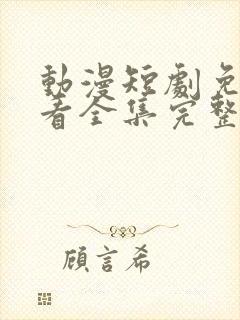 動漫短劇免
看全集完整
顧言希